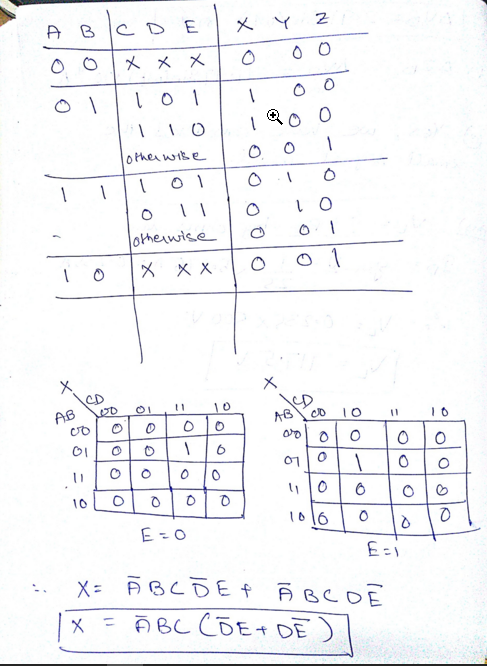 A B C D E X Y Z
0 0 x x x 0 0 0
0 1 1 0 1 1 0 0
1 1 0 1 0 0
otherwise 0 0 1
1 1 1 0 1 0 1 0
0 1 1 0 1 0
- otherwise 0 0 1
1 0 x x x 0 0 1
X
CD
AB 00 01 11 10
00 0 0 0 0
01 0 0 1 0
11 0 0 0 0
10 0 0 0 0
E = 0
X
CD
AB 00 10 11 10
00 0 0 0 0
01 0 1 0 0
11 0 0 0 0
10 0 0 0 0
E = 1
∴ X = A̅BCD̅E + A̅BCDE̅
X = A̅BC(D̅E + DE̅)